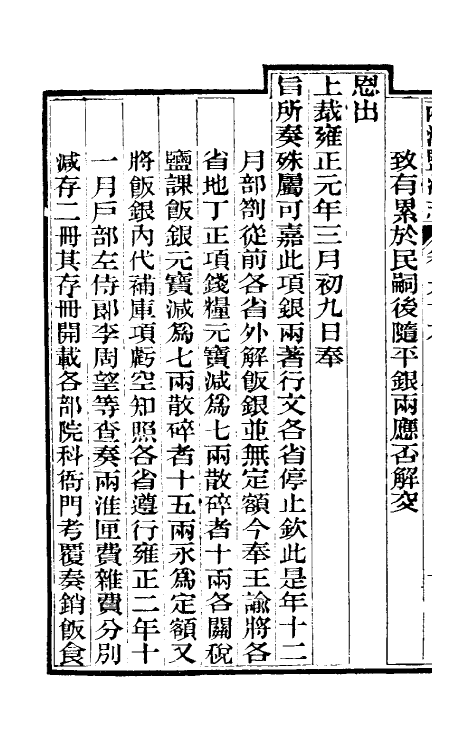 致有累於民嗣後隨平銀兩應否解交
恩出
上裁雍正元年三月初九日奉
旨所奏殊屬可嘉此項銀兩著行文各省停止欽此是年十二
月部劄從前各省外解飯銀並無定額今奉王諭將各
省地丁正項錢糧元寶減爲七兩散碎者十兩各關稅
鹽課飯銀元寶減爲七兩散碎者十五兩永爲定額又
將飯銀內代補庫項虧空知照各省遵行雍正二年十
一月戶部左侍郎李周望等查奏兩淮匣費雜費分別
減存二冊其存冊開載各部院科衙門考覆奏銷飯食